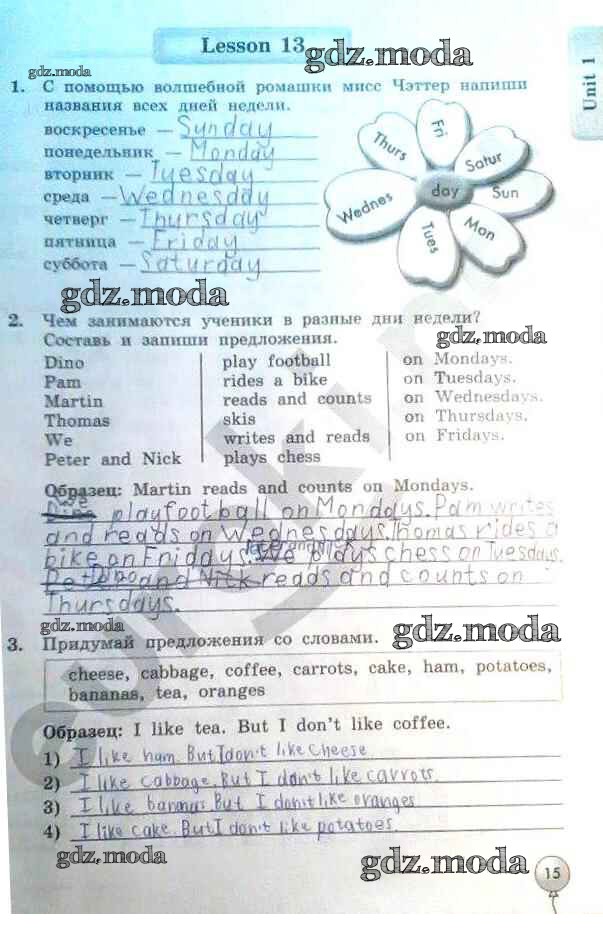 Lesson 13
gdz.moda
gdz.moda
1. С помощью волшебной ромашки мисс Чэттер напиши
названия всех дней недели.
воскресенье — Sunday
понедельник — Monday
вторник — Tuesday
среда — Wednesday
четверг — Thursday
пятница — Friday
суббота — Saturday
Fri
Thurs
Satur
day
Sun
Wednes
Mon
Tues
Unit 1
gdz.moda
2. Чем занимаются ученики в разные дни недели?
Составь и запиши предложения.
gdz.moda
Dino play football on Mondays.
Pam rides a bike on Tuesdays.
Martin reads and counts on Wednesdays.
Thomas skis on Thursdays.
We writes and reads on Fridays.
Peter and Nick plays chess
Образец: Martin reads and counts on Mondays.
We play football on Mondays. Pam writes
and reads on Wednesdays. Thomas rides a
bike on Fridays. plays chess on Tuesdays.
Dino and Nick reads and counts on
Thursdays.
gdz.moda
gdz.moda
3. Придумай предложения со словами.
cheese, cabbage, coffee, carrots, cake, ham, potatoes,
bananas, tea, oranges
Образец: I like tea. But I don't like coffee.
1) I like ham. But I don't like Cheese
2) I like cabbage. But I don't like carrots.
3) I like bananas But I don't like oranges
4) I like cake. But I don't like potatoes.
gdz.moda
gdz.moda
15